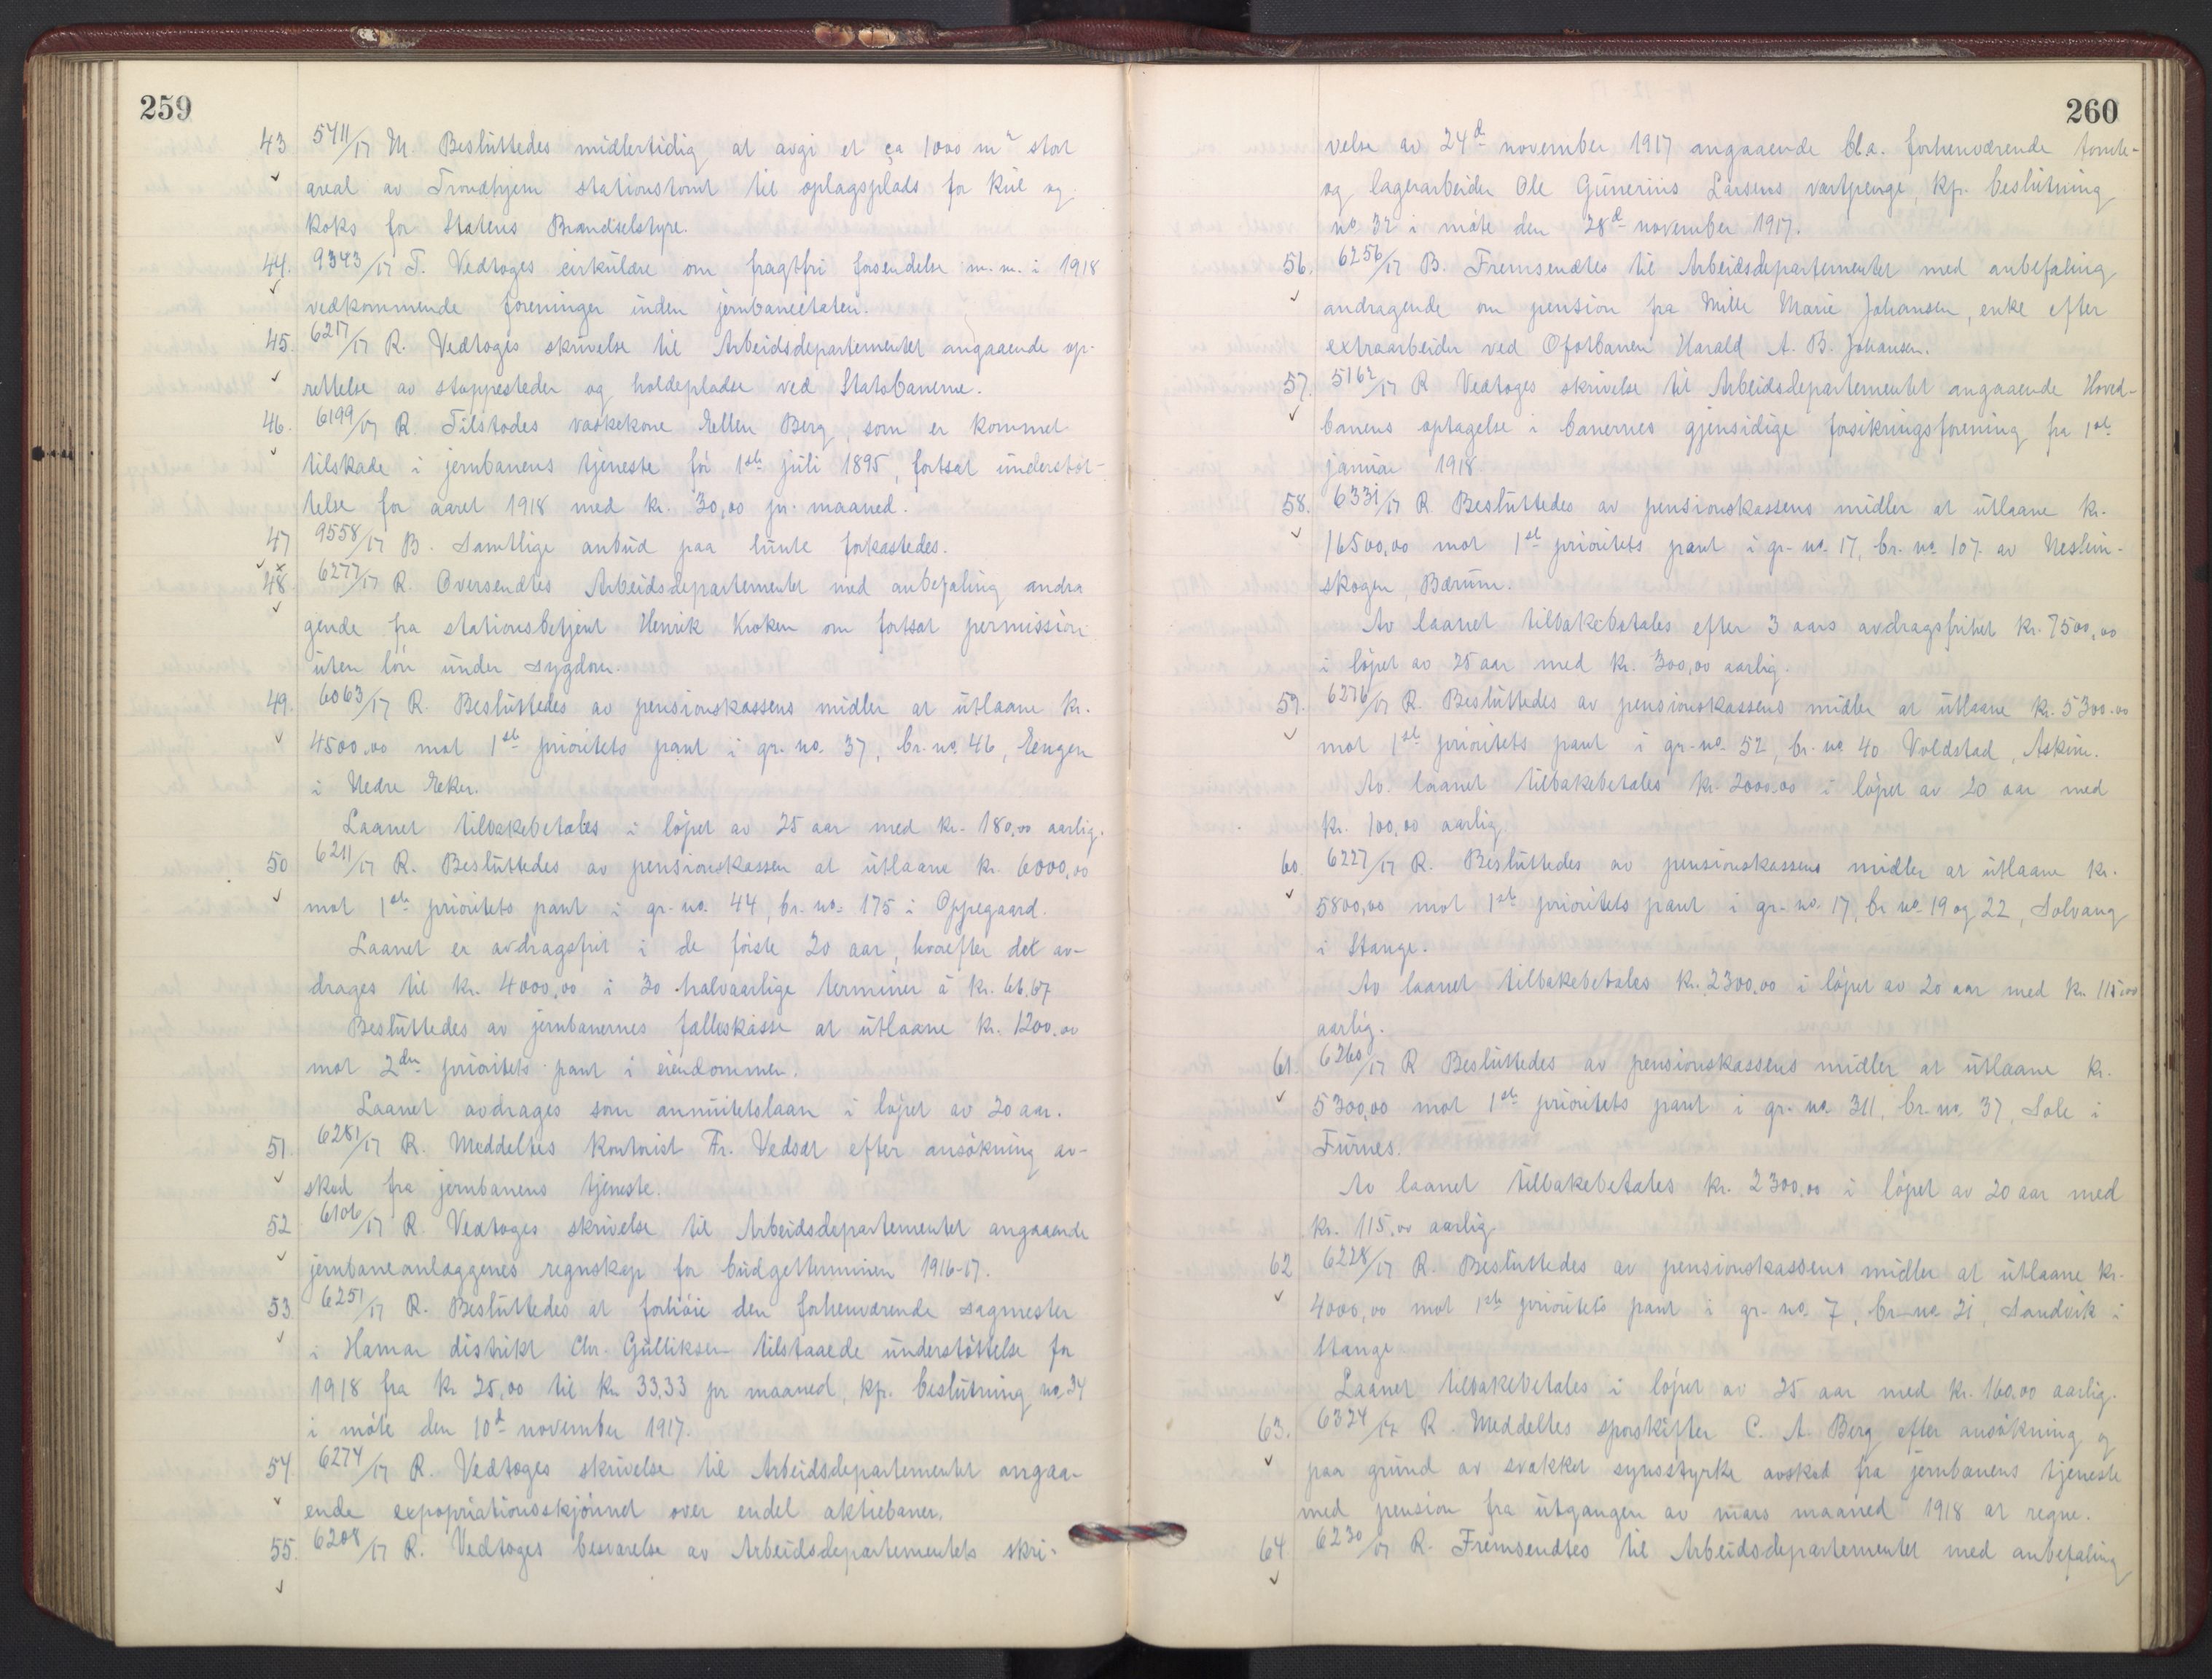 259
43 5411/17 M. Besluttedes midlertidig at avgi et ca 1000 m² stort
areal av Trondhjem stationstomt til oplagsplads for kul og
koks for Statens Brændselstyre.
44. 9343/17 T. Vedtoges cirkulære om fragtfri forsendelse m.m. i 1918
vedkommende foreninger inden jernbaneetaten.
45. 6217/17 R. Vedtoges skrivelse til Arbeidsdepartementet angaaende op-
rettelse av stoppesteder og holdepladse ved Statsbanerne.
46. 6199/17 R. Tilstodes vaskekone Ellen Berg, som er kommet
tilskade i jernbanens tjeneste før 1ste juli 1895, fortsat understøt-
telse for aaret 1918 med kr. 30,00 pr. maaned.
47 9558/17 B. Samtlige anbud paa lunte forkastedes.
48. 6277/17 R. Oversendtes Arbeidsdepartementet med anbefaling andra
gende fra stationsbetjent Henrik Kroken om fortsat permission
uten løn under sygdom.
49. 6063/17 R. Besluttedes av pensionskassens midler at utlaane kr.
4500,00 mot 1ste prioritets pant i gr. no. 37, br. no. 46, Eengen
i Nedre Eker.
Laanet tilbakebetales i løpet av 25 aar med kr. 180,00 aarlig.
50 6211/17 R. Besluttedes av pensionskassen at utlaane kr. 6000,00
mot 1ste prioritets pant i gr. no. 44, br. no. 175 i Oppegaard.
Laanet er avdragsfrit i de første 20 aar, hvorefter det av-
drages til kr. 4000,00 i 30 halvaarlige terminer à kr. 66,67
Besluttedes av jernbanernes fælleskasse at utlaane kr. 1200.00
mot 2den prioritets pant i eiendommen.
Laanet avdrages som annuitetslaan i løpet av 20 aar.
51. 6281/17 R. Meddeltes kontorist Fr. Vedsat efter ansøkning av-
sked fra jernbanens tjeneste.
52 6106/17 R. Vedtoges skrivelse til Arbeidsdepartementet angaaende
jernbaneanlæggenes regnskap for budgetterminen 1916-17.
53. 6251/17 R. Besluttedes at forhøie den forhenværende sagmester
i Hamar distrikt Chr. Gulliksen tilstaaede understøttelse for
1918 fra kr 25,00 til kr. 33,33 pr maaned, kfr. beslutning no. 34
i møte den 10d november 1917.
54 6274/17 R. Vedtoges skrivelse til Arbeidsdepartementet angaa-
ende expopriationsskjønnet over endel aktiebaner.
55. 6208/17 R. Vedtoges besvarelse av Arbeidsdepartementets skri-
260
velse av 24d november 1917 angaaende bl.a. forhenværende tomte-
og lagerarbeider Ole Gunerius Larsens vartpenge, kfr. beslutning
no. 32 i møte den 28d november 1917.
56. 6256/17 B. Fremsendtes til Arbeidsdepartementet med anbefaling
andragende om pension fra Mille Marie Johansen, enke efter
extraarbeider ved Ofotbanen Harald A. B. Johansen.
57. 5162/17 R Vedtoges skrivelse til Arbeidsdepartementet angaaende Hoved-
banens optagelse i banernes gjensidige forsikringsforening fra 1ste
januar 1918.
58. 6331/17 R Besluttedes av pensionskassens midler at utlaane kr.
16500,00 mot 1ste prioritets pant i gr. no. 17, br. no. 107 av Neslein-
skogen, Bærum.
Av laanet tilbakebetales efter 3 aars avdragsfrihet kr. 7500,00
i løpet av 25 aar med kr. 300,00 aarlig.
59. 6276/17 R. Besluttedes av pensionskassens midler at utlaane kr. 5300.00
mot 1ste prioritets pant i gr. no. 52, br. no. 40 Voldstad, Askim.
Av. laanet tilbakebetales kr. 2000.00 i løpet av 20 aar med
kr. 100,00 aarlig.
60. 6227/17 R. Besluttedes av pensionskassens midler at utlaane kr.
5800,00 mot 1ste prioritets pant i gr. no. 17, br. no. 19 og 22, Solvang
i Stange.
Av laanet tilbakebetales kr. 2300,00 i løpet av 20 aar med kr. 115,00
aarlig.
61. 6260/17 R Besluttedes av pensionskassens midler at utlaane kr.
5300,00 mot 1ste prioritets pant i gr. no. 311, br. no. 37, Sole i
Furnes.
Av laanet tilbakebetales kr. 2300,00 i løpet av 20 aar med
kr. 115,00 aarlig.
62 6228/17 R. Besluttedes av pensionskassens midler at utlaane kr.
4000,00 mot 1ste prioritets pant i gr. no. 7, br. no 21, Sandvik i
Stange
Laanet tilbakebetales i løpet av 25 aar med kr. 160.00 aarlig.
63. 6324/17 R. Meddeltes sporskifter C. A. Berg efter ansøkning og
paa grund av svækket synsstyrke avsked fra jernbanens tjeneste
med pension fra utgangen av mars maaned 1918 at regne.
64 6230/17 R. Fremsendtes til Arbeidsdepartementet med anbefaling